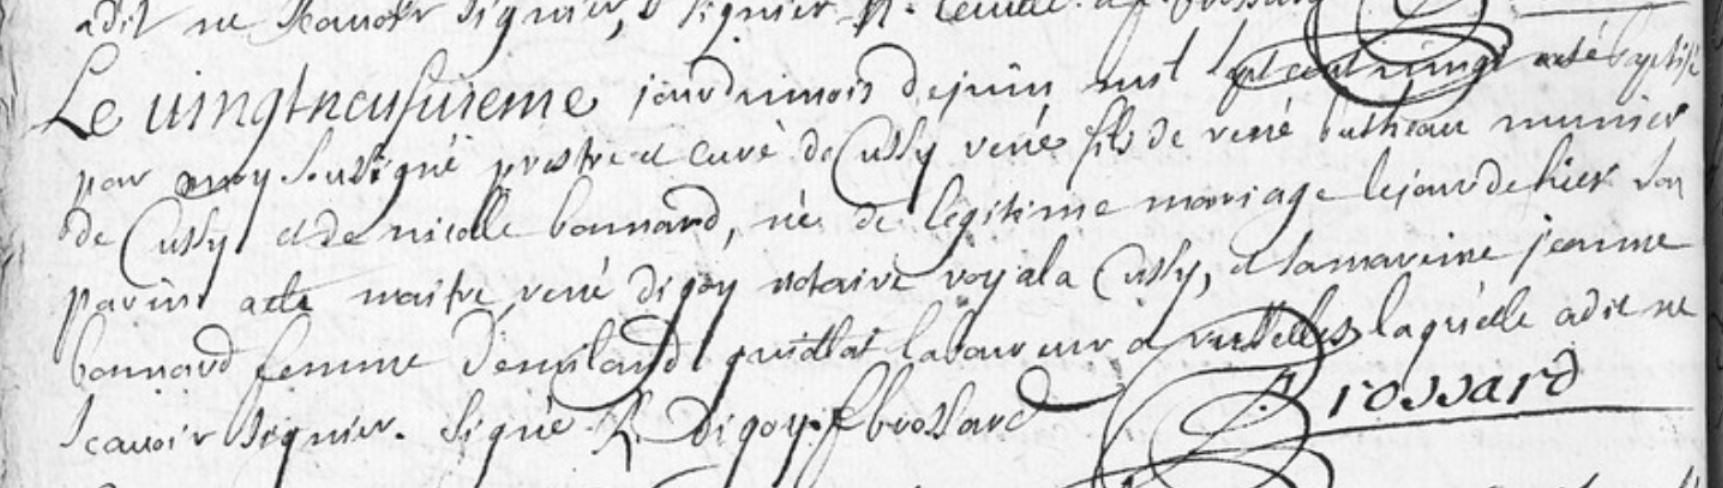 adit ne scauoir signier, signier
Le uingtneufuieme jour du mois de juin mil sept cent vingt a eté baptisé
par moy soubsigné prestre et curé de Cussy rené fils de rené munier
de Cussy et de nicolle bonnard, né de légitime mariage le jour de hier son
parin a eté maitre rené digoy notaire royal a Cussy, et la mareine jeanne
bonnard femme d'emiland laboureur a laquelle a dit ne
scauoir signier. Signé R. Digoy. f brossard
Brossard